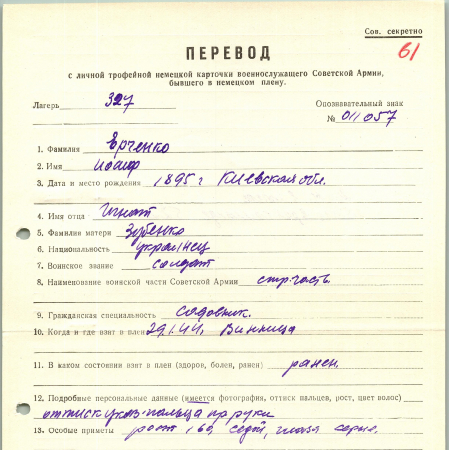 Сов. секретно
61
ПЕРЕВОД
с личной трофейной немецкой карточки военнослужащего Советской Армии,
бывшего в немецком плену.
Лагерь 327 Опознавательный знак
№ 011057
1. Фамилия Ерченко
2. Имя Иосиф
3. Дата и место рождения 1895 г Киевская обл.
4. Имя отца Игнат
5. Фамилия матери Зубенко
6. Национальность украинец
7. Воинское звание солдат
8. Наименование воинской части Советской Армии стр. часть.
9. Гражданская специальность садовник.
10. Когда и где взят в плен 29.1.44. Винница
11. В каком состоянии взят в плен (здоров, болен, ранен) ранен.
12. Подробные персональные данные (имеется фотография, оттиск пальцев, рост, цвет волос)
оттиск указ. пальца пр руки
13. Особые приметы рост 169, седой, глаза серые.